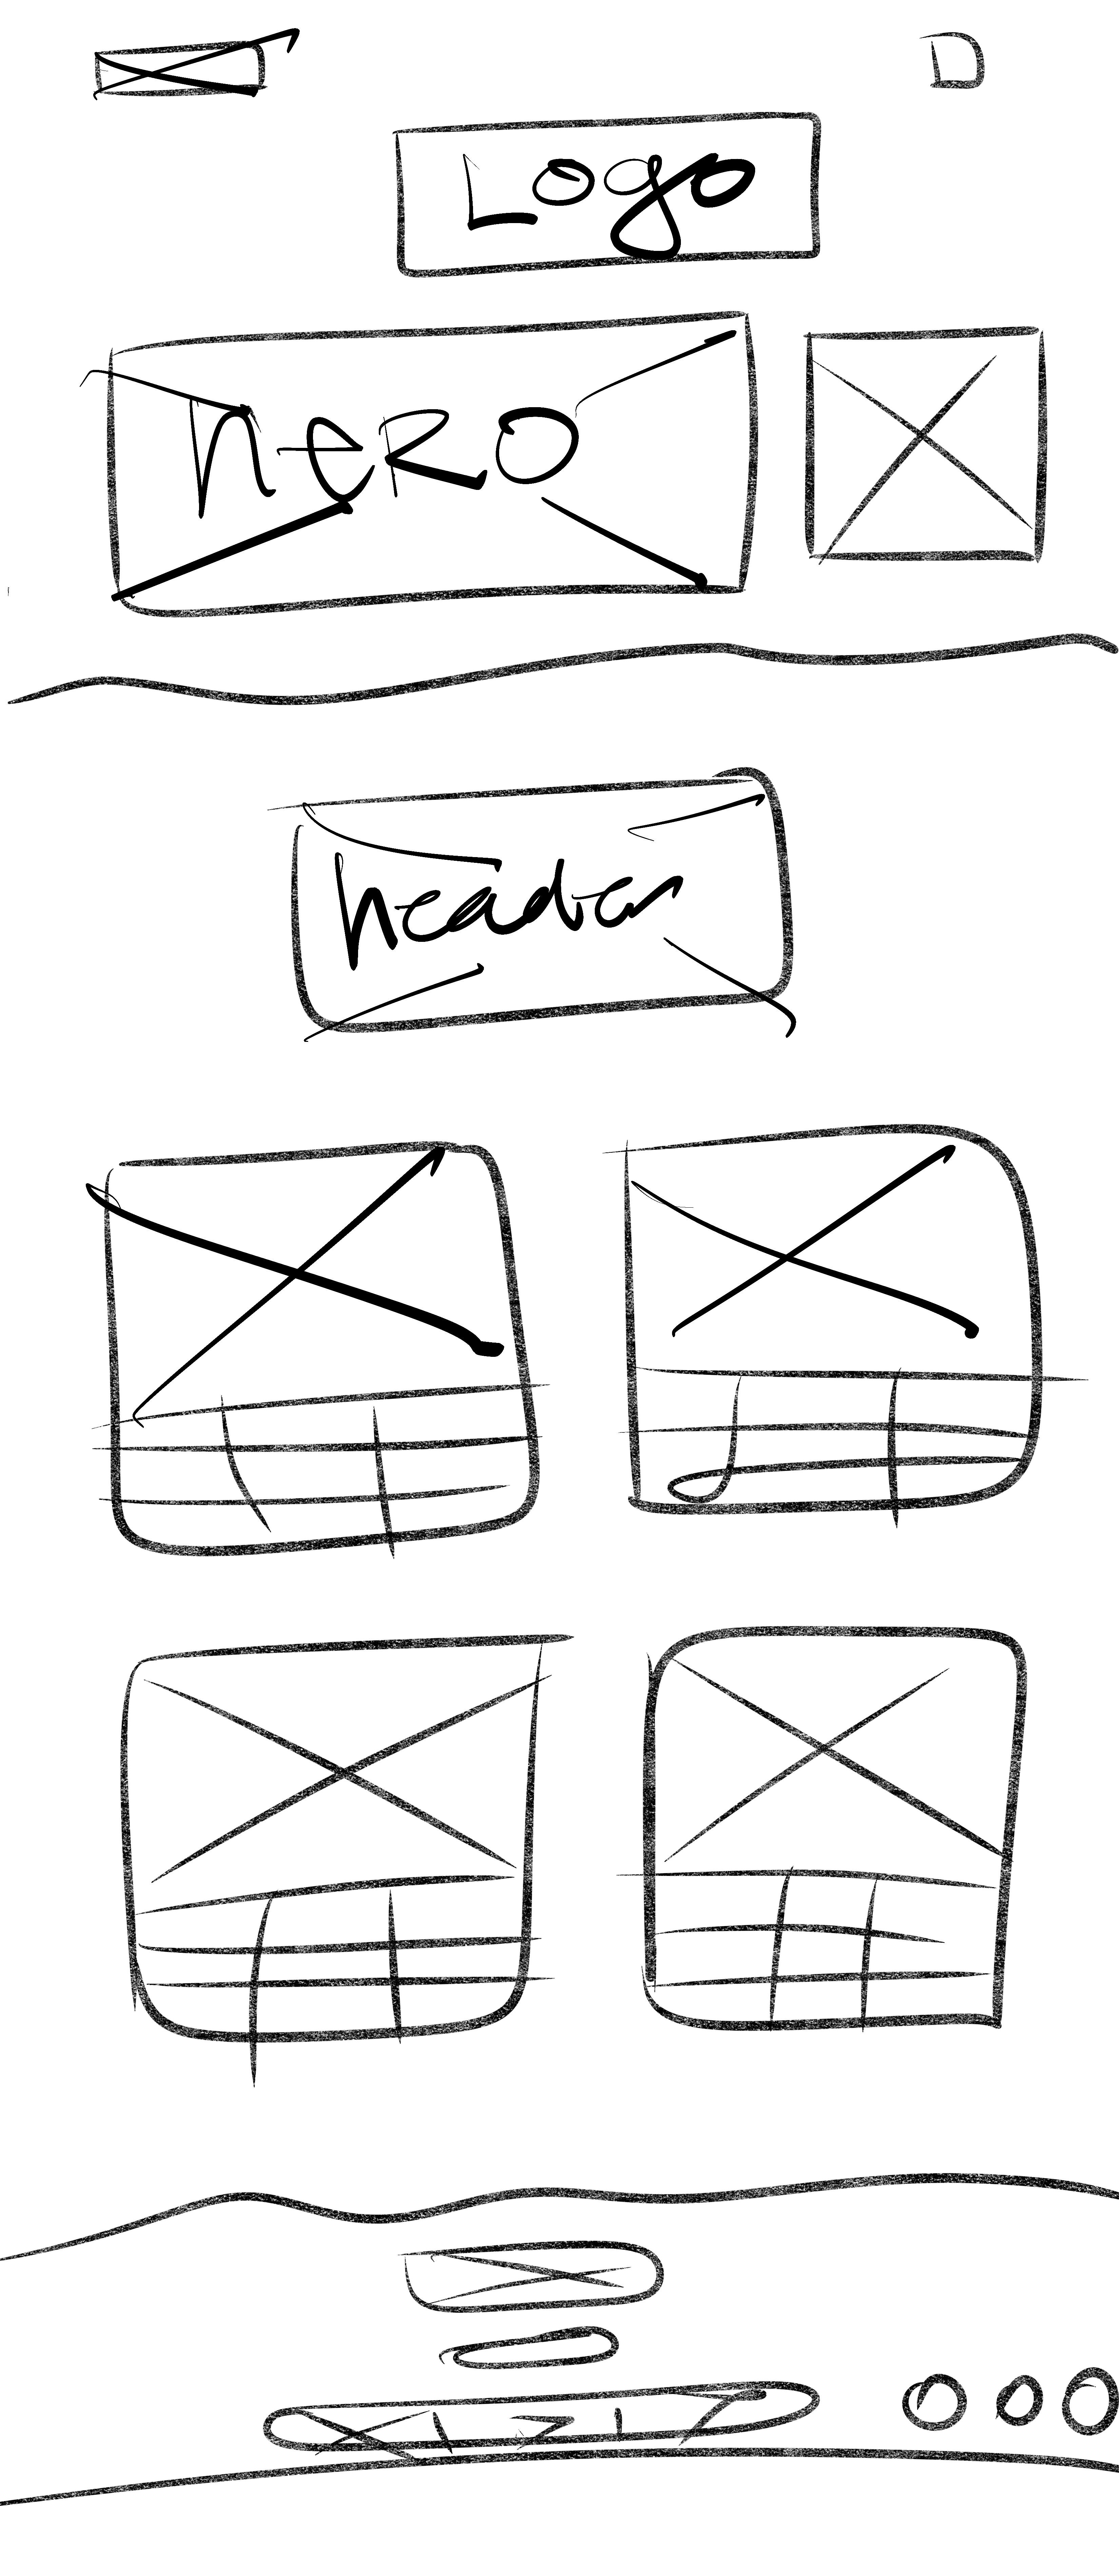 Logo
heRO
header